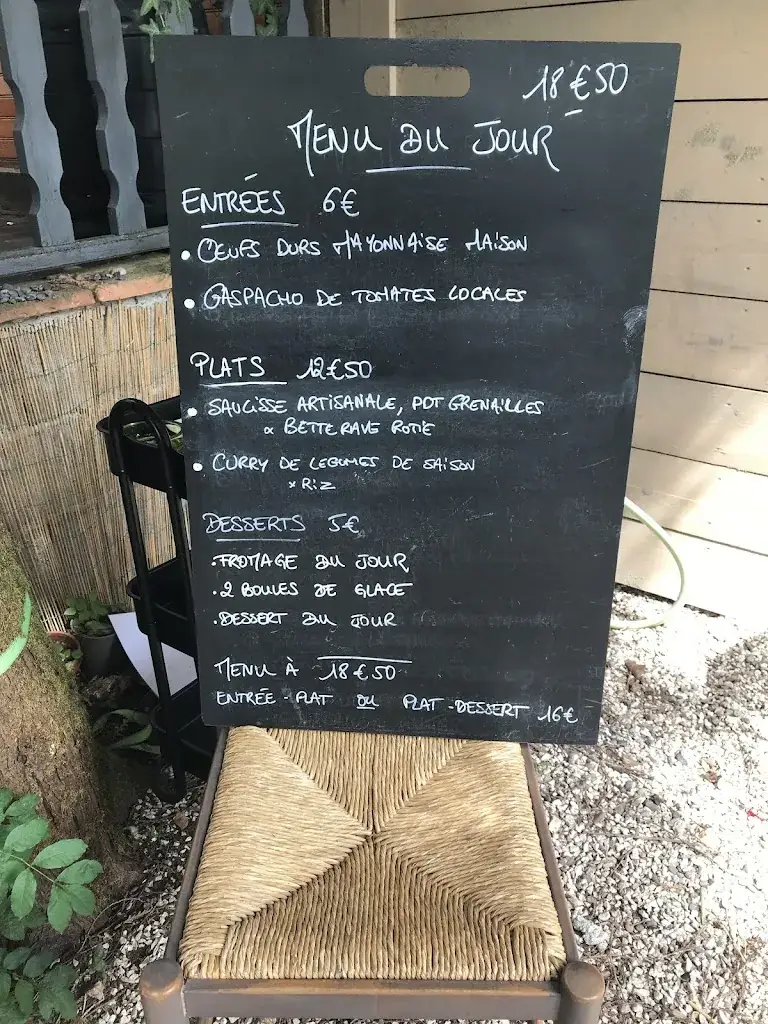 18€50
MENU DU JOUR
ENTRÉES 6€
• OEUFS DURS MAYONNAISE MAISON
• GASPACHO DE TOMATES LOCALES
PLATS 12€50
• SAUCISSE ARTISANALE, PDT GRENAILLES
& BETTERAVE ROTIE
• CURRY DE LEGUMES DE SAISON
× RIZ
DESSERTS 5€
• FROMAGE DU JOUR
• 2 BOULES DE GLACE
• DESSERT DU JOUR
MENU À 18€50
ENTRÉE - PLAT OU PLAT - DESSERT 16€